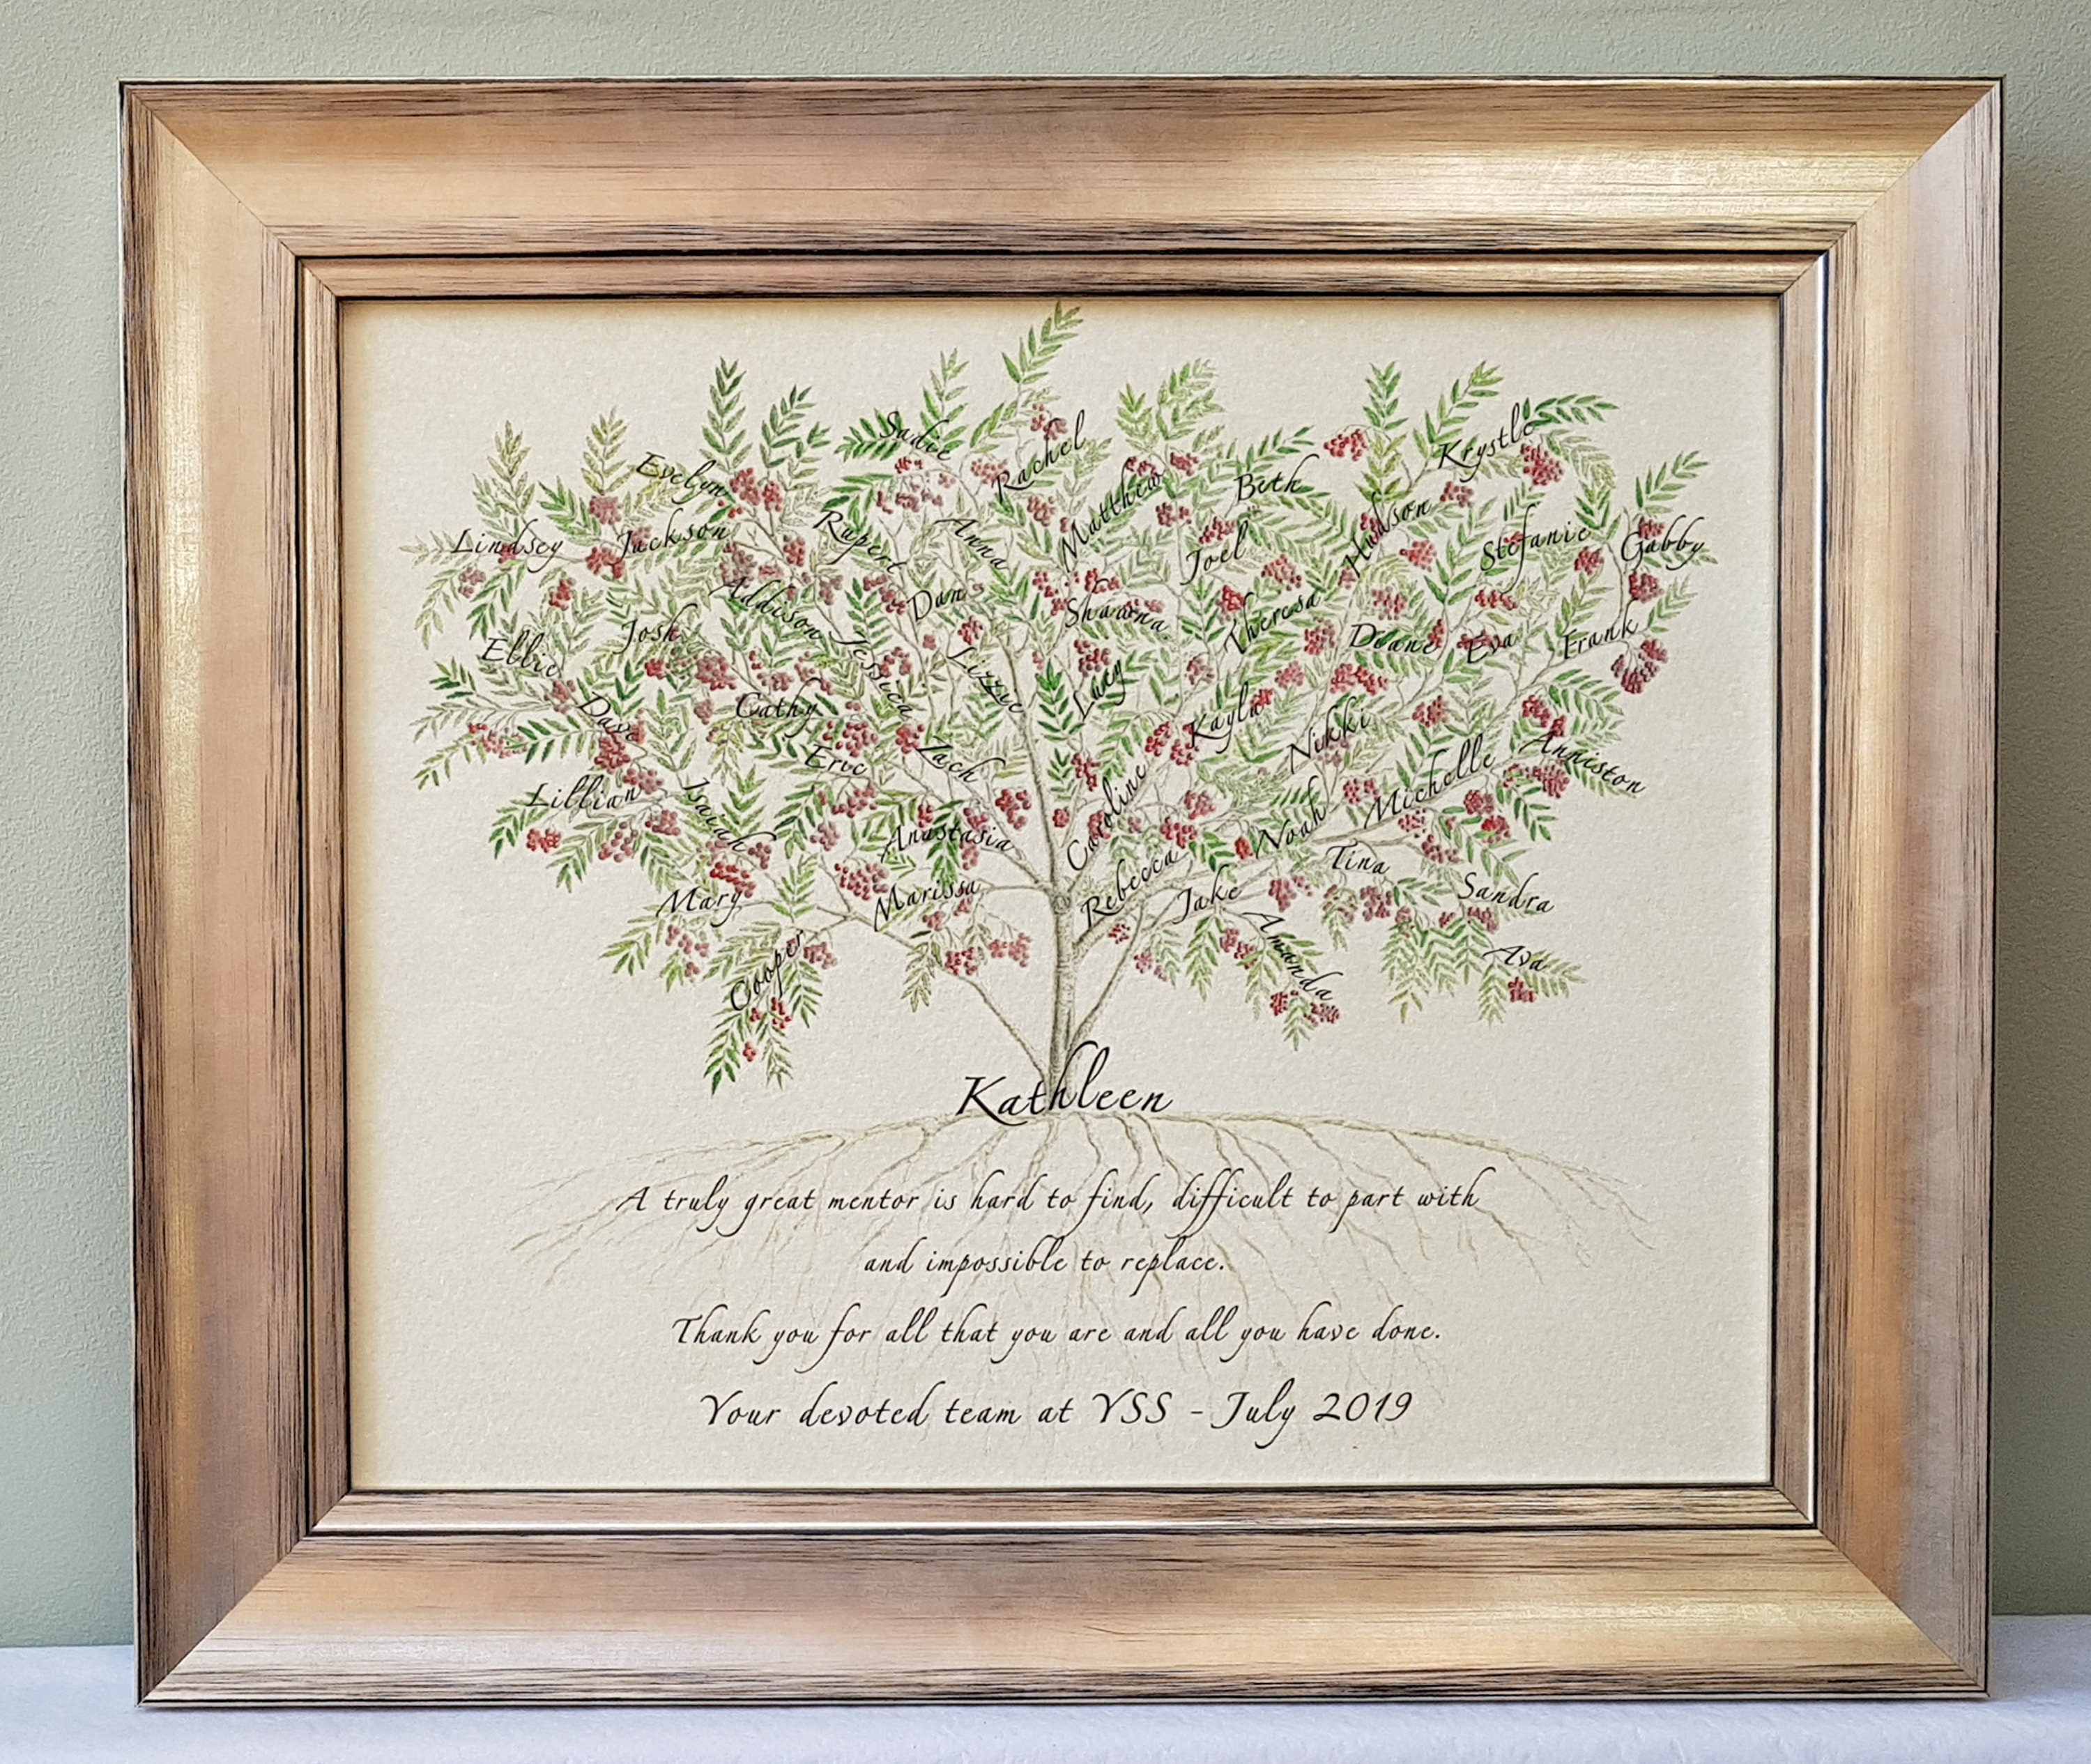 Sadie
Rachel
Krystle
Evelyn
Matthew
Beth
Hudson
Lindsey
Jackson
Rupert
Anna
Joel
Stefanie
Gabby
Addison
Dan
Shawna
Theresa
Ellie
Josh
Jessica
Lizzie
Duane
Eva
Frank
Dave
Cathy
Lucy
Kayla
Nikki
Eric
Zach
Michelle
Anniston
Lillian
Isaiah
Anastasia
Caroline
Noah
Tina
Mary
Marissa
Rebecca
Jake
Sandra
Cooper
Amanda
Ava
Kathleen
A truly great mentor is hard to find, difficult to part with
and impossible to replace.
Thank you for all that you are and all you have done.
Your devoted team at YSS - July 2019